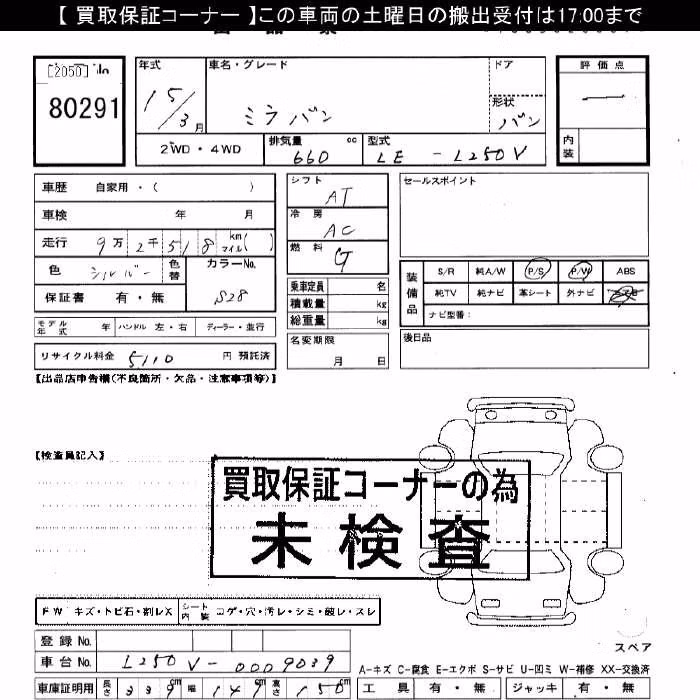 【 買取保証コーナー 】この車両の土曜日の搬出受付は17:00まで
[2050] No
80291
年式
15/3月
車名・グレード
ミラバン
ドア
形状
バン
評価点
内装
2WD・4WD
排気量 cc
660
型式
LE - L250V
車歴 自家用・( )
車検 年 月
走行 9万2千518 km マイル( )
色 シルバー 色替
カラーNo.
S28
保証書 有・無
モデル年式 年 ハンドル 左・右 ディーラー・並行
リサイクル料金 5110 円 預託済
シフト AT
冷房 AC
燃料 G
乗車定員 名
積載量 kg
総重量 kg
名変期限
月 日
セールスポイント
装備品
S/R 純A/W P/S P/W ABS
純TV 純ナビ 革シート 外ナビ
ナビ型番:
後日品
【出品店申告欄(不良箇所・欠品・注意事項等)】
【検査員記入】
買取保証コーナーの為
未検査
FW キズ・トビ石・割レX
シート内装 コゲ・穴・汚レ・シミ・破レ・スレ
登録 No.
車台 No. L250V-0009039
車庫証明用 長さ 339cm 幅 147cm 高さ 150cm
スペア
A-キズ C-腐食 E-エクボ S-サビ U-凹ミ W-補修 XX-交換済
工具 有・無 ジャッキ 有・無